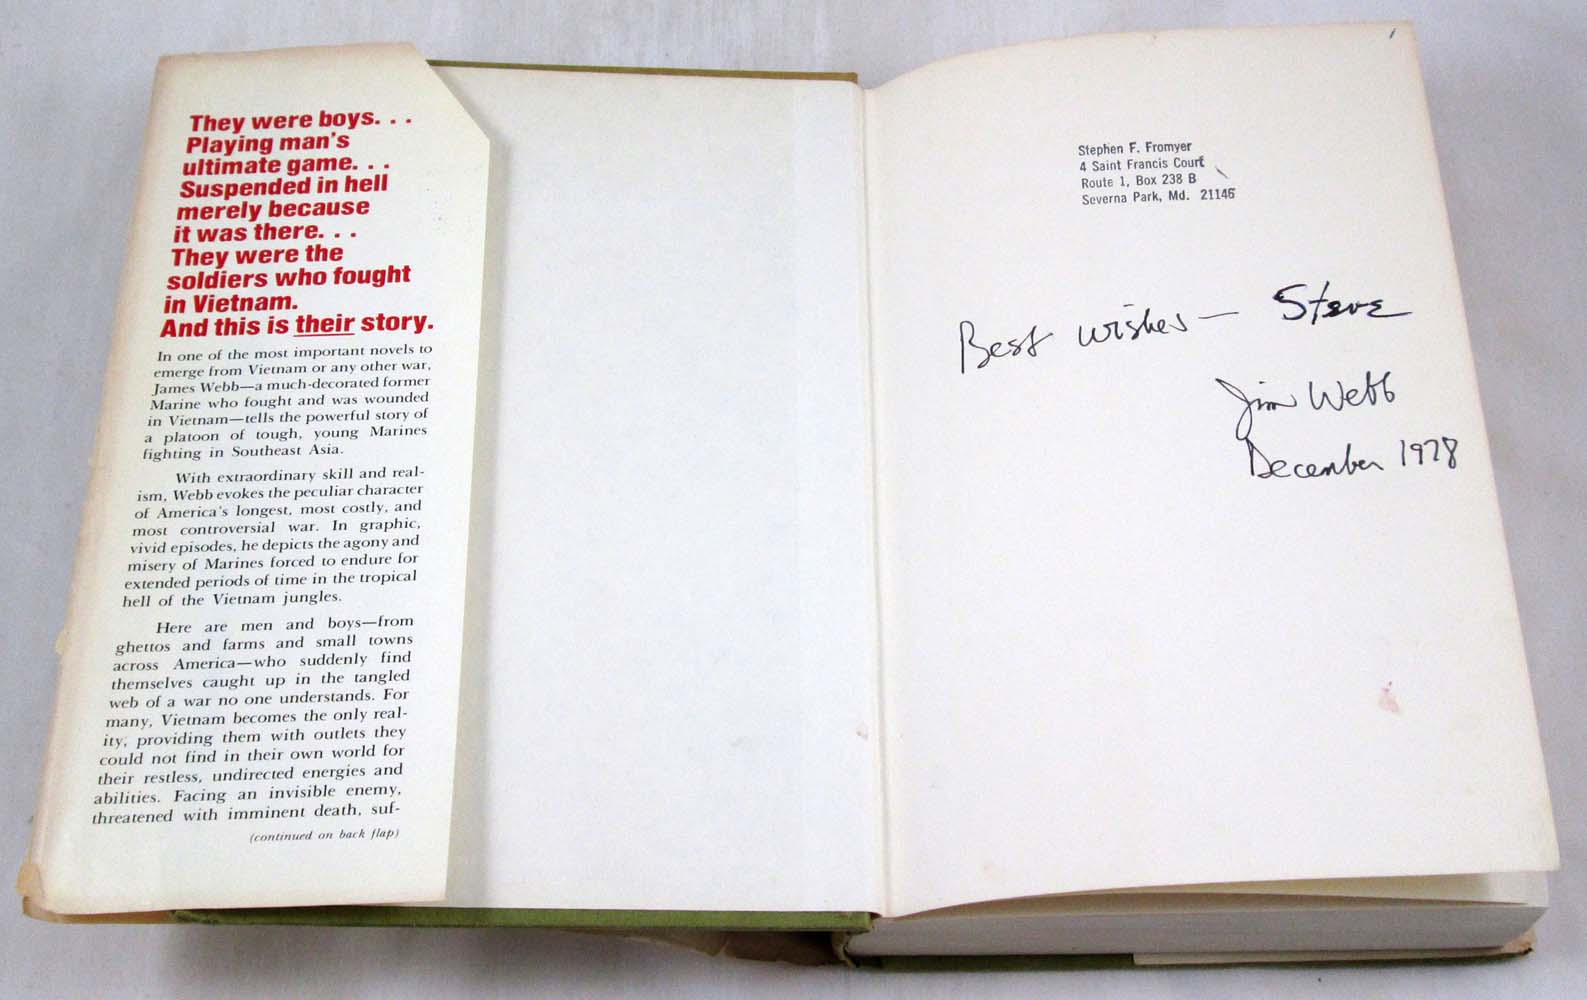 They were boys. . .
Playing man's
ultimate game. . .
Suspended in hell
merely because
it was there. . .
They were the
soldiers who fought
in Vietnam.
And this is their story.
In one of the most important novels to
emerge from Vietnam or any other war,
James Webb—a much-decorated former
Marine who fought and was wounded
in Vietnam—tells the powerful story of
a platoon of tough, young Marines
fighting in Southeast Asia.
With extraordinary skill and real-
ism, Webb evokes the peculiar character
of America's longest, most costly, and
most controversial war. In graphic,
vivid episodes, he depicts the agony and
misery of Marines forced to endure for
extended periods of time in the tropical
hell of the Vietnam jungles.
Here are men and boys—from
ghettos and farms and small towns
across America—who suddenly find
themselves caught up in the tangled
web of a war no one understands. For
many, Vietnam becomes the only real-
ity, providing them with outlets they
could not find in their own world for
their restless, undirected energies and
abilities. Facing an invisible enemy,
threatened with imminent death, suf-
(continued on back flap)
Stephen F. Fromyer
4 Saint Francis Court
Route 1, Box 238 B
Severna Park, Md. 21146
Best wishes — Steve
Jim Webb
December 1978